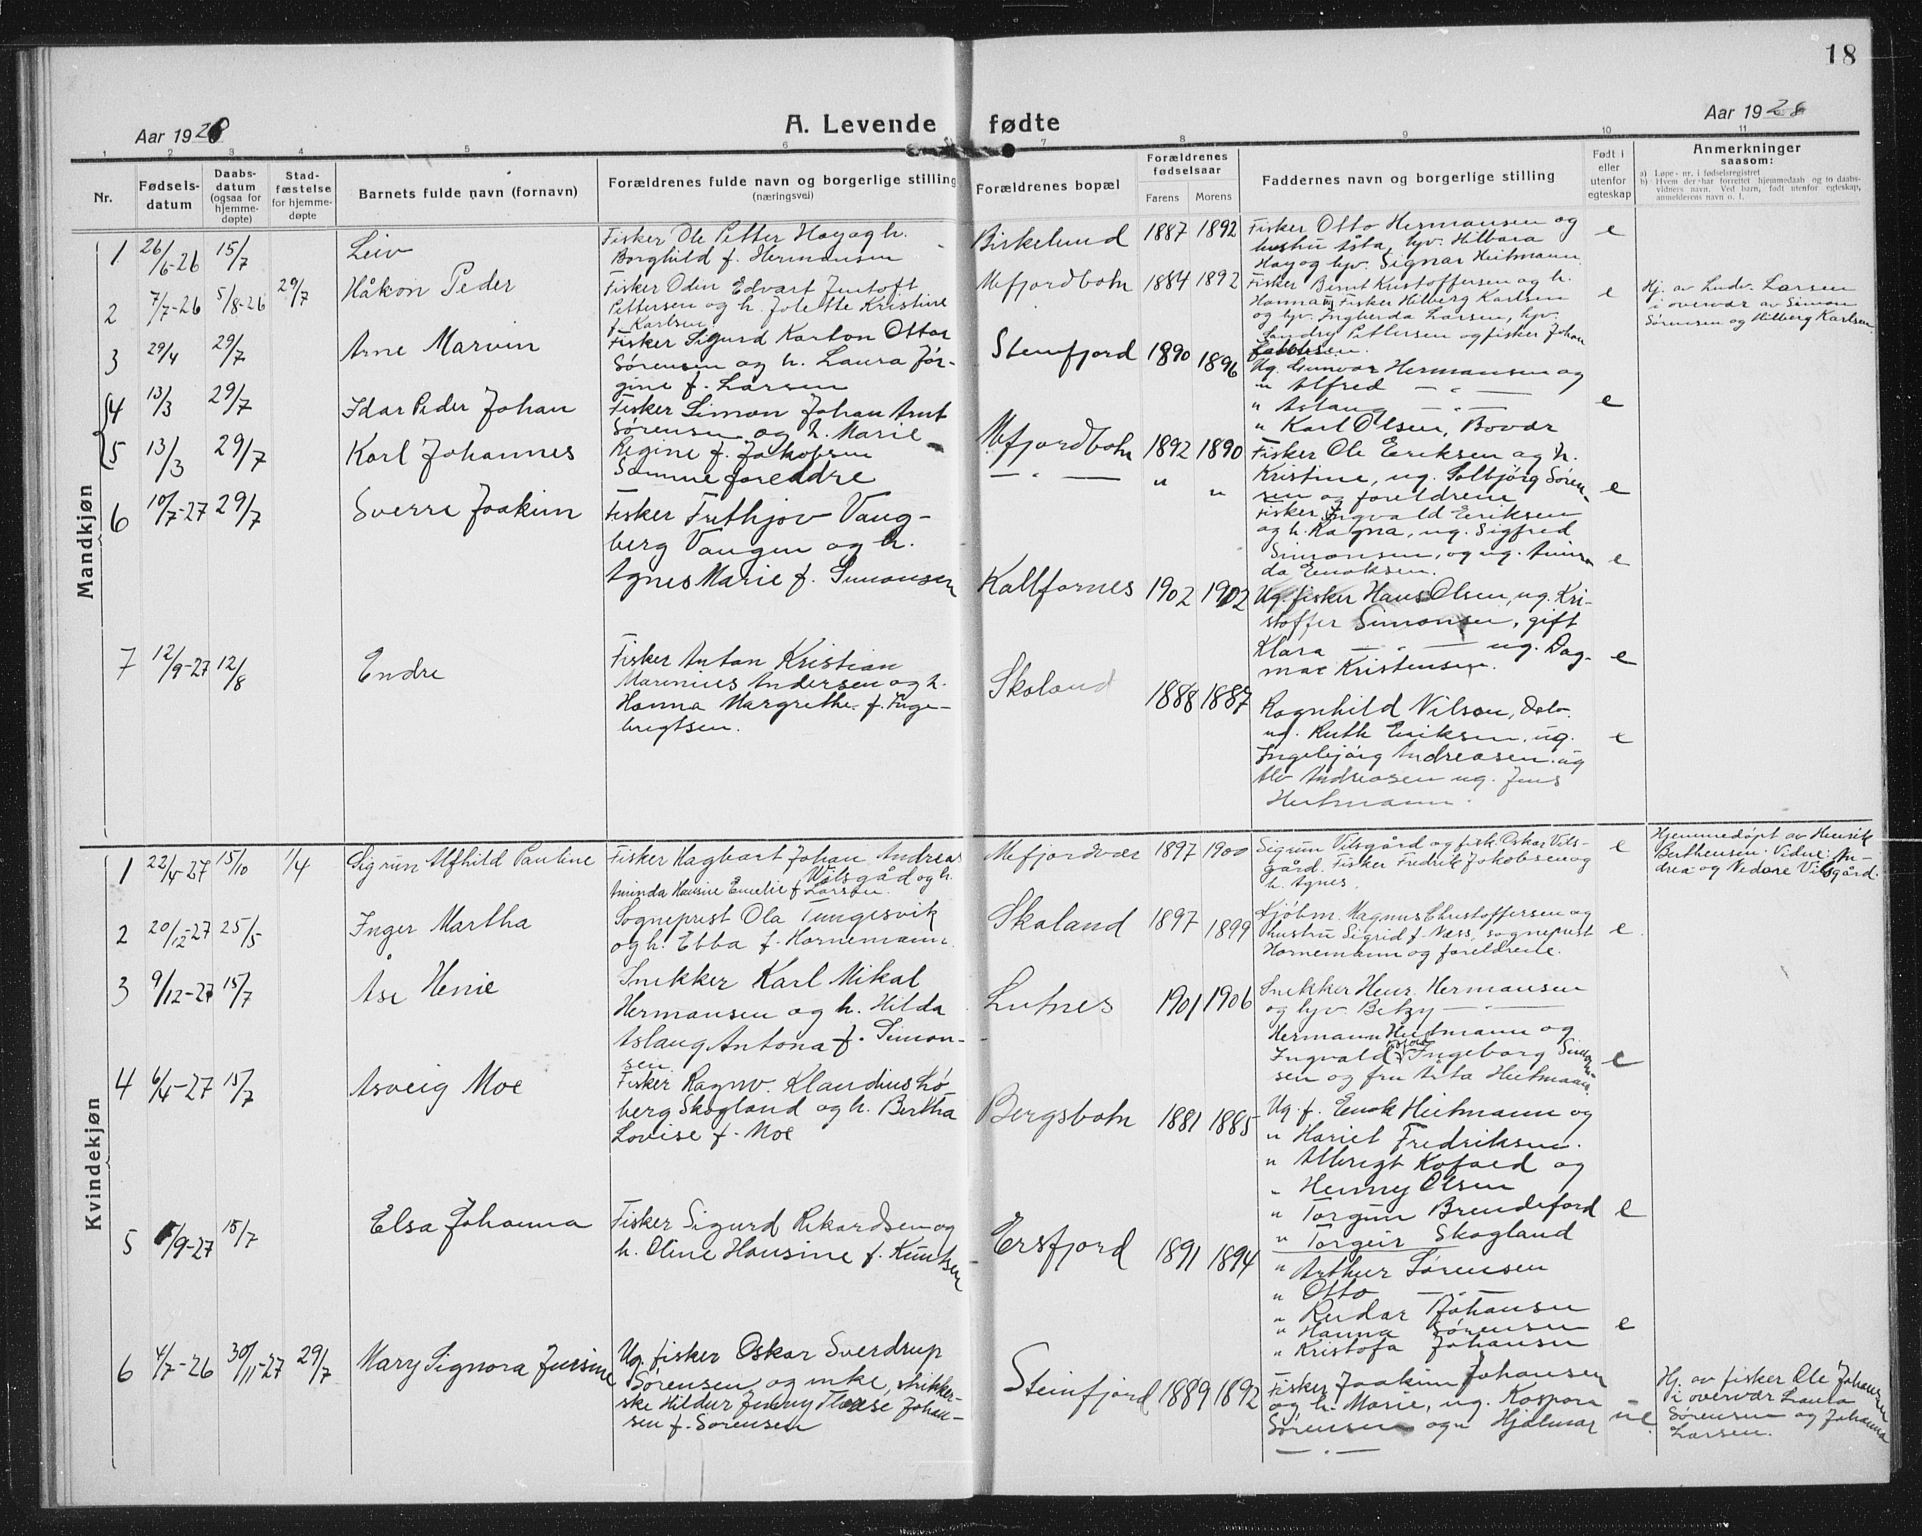 18
Aar 1928
A. Levende fødte
Aar 1928
1 2 3 4 5 6 7 8 9 10 11
Nr.
Fødsels-
datum
Daabs-
datum
(ogsaa for
hjemme-
døpte)
Stad-
fæstelse
for hjemme-
døpte
Barnets fulde navn (fornavn)
Forældrenes fulde navn og borgerlige stilling
(næringsvei)
Forældrenes bopæl
Forældrenes
fødselsaar
Farens Morens
Faddernes navn og borgerlige stilling
Født i
eller
utenfor
egteskap
Anmerkninger
saasom:
a) Løpe-nr. i fødselsregistret
b) Hvem der har forrettet hjemmedaab og to daabs-
vidners navn. Ved barn, født utenfor egteskap,
anmelderens navn o. l.
Mandkjøn
1 26/6-26 15/7 Leiv
Fisker Ole Petter Hayog h.
Borghild f. Hermansen
Birkelund 1887 1892
Fisker Otto Hermansen og
hustru Åsta, hv. Hilbara
Hayog hv. Signar Heitmann
e
2 7/7-26 5/8-26 29/7 Håkon Peder
Fisker Odin Edvart Jentoft
Pettersen og h. Jolette Kristine
f. Karlsen
Mefjordbotn 1884 1892
Fisker Bernt Kristoffersen og h.
Hanna og Fisker Hilberg Karlsen
og hv. Ingberda Larsen, hv.
Sandry Pettersen og fisker Johan
e
Hj. av Ludv. Larsen
i overvær av Simon
Sørensen og Hilberg Karlsen
3 29/4 29/7 Arne Marvin
Fisker Sigurd Karton Ottar
Sørensen og h. Laura Jør-
gine f. Larsen
Steinfjord 1890 1896
Ug. Gunvor Hermansen og
" Alfred — " —
" Aslaug — " —
" Karl Olsen, Bovær
e
4 13/3 29/7 Idar Peder Johan
Fisker Simon Johan Arnt
Sørensen og h. Marie
Regine f. Jakobsen
Mefjordbotn 1892 1890
Fisker Ole Eriksen og h.
Kristine, ug. Solbjørg Søren-
sen og foreldrene
e
5 13/3 29/7 Karl Johannes
Samme foreldre
— " — " "
Fisker Ingvald Eriksen
og h. Ragna, ug. Sigfred
Simonsen, og ug. Amin-
da Enoksen.
e
6 10/7-27 29/7 Sverre Joakim
Fisker Frithjov Vang-
berg Vangen og h.
Agnes Marie f. Simonsen
Kaldfarnes 1902 1902
Ug. fisker Hans Olsen, ug. Kri-
stoffer Simonsen, gift
Klara — " — ug. Dag-
mar Kristensen.
e
7 12/9-27 12/8 Endre
Fisker Anton Kristian
Marenius Andersen og h.
Hanna Margrethe f. Inge-
brigtsen.
Skaland 1888 1887
Ragnhild Nilsen, Oslo.
ug. Ruth Eriksen, ug.
Ingebjørg Andreasen. ug
Alv Andreasen ug. Jens
Heitmann.
e
Kvindekjøn
1 22/4-27 15/10 1/4 Sigrun Alfhild Pauline
Fisker Hagbart Johan Andreas
Vilsgård og h.
Aminda Hansine Emelie f. Larsen.
Mefjordvær 1897 1900
Sigrun Vilsgård og fisk. Oskar Vils-
gård. Fisker Fredrik Jakobsen og
h. Agnes.
e
Hjemmedøpt av Henrik
Berthensen. Vidne: An-
drea og Nedare Vilsgård.
2 20/12-27 25/5 Inger Martha
Sogneprest Ola Tungesvik
og h. Ebba f. Hornemann.
Skaland 1897 1899
Kjøbm. Magnus Christoffersen og
hustru Sigrid f. Næss, sogneprest
Hornemann og foreldrene.
e
3 9/12-27 15/7 Åse Henie
Snekker Karl Mikal
Hermansen og h. Hilda
Aslaug Antona f. Simon-
sen
Lutnes 1901 1906
Snekker Henr. Hermansen
og hv. Betzy — " —
Hermann Heitmann og
Ingvald Ingeborg Simon-
sen og fru Asta Heitmann
e
4 6/4-27 15/7 Asveig Moe
Fisker Ragnv. Klaudius Lø-
berg Skogland og h. Bertha
Lovise f. Moe
Bergsbotn 1881 1885
Ug. f. Enok Heitmann og
" Hariet Fredriksen.
" Albrigt Kofoed og
" Henny Olsen
" Torgun Brendeford
" Torgeir Skogland
e
5 5/9-27 15/7 Elsa Johanna
Fisker Sigurd Rikardsen og
h. Oline Hansine f. Knutsen
Ersfjord 1891 1894
" Arthur Sørensen
" Otto — " —
" Reidar Johansen
" Hanna Sørensen
" Kristofa Johansen
e
6 4/7-26 30/11-27 29/7 Mary Signora Jensine
Ug. fisker Oskar Sverdrup
Sørensen og enke, strikker-
ske Hildur Jenny Therese Johan-
sen f. Sørensen
Steinfjord 1889 1892
Fisker Joakim Johansen
og h. Marie, ug. Kaspara
Sørensen og " Hjalmar
— " —
ue.
Hj. av fisker Ole Johansen
i overvær Laura
Sørensen og Johanna
Larsen.